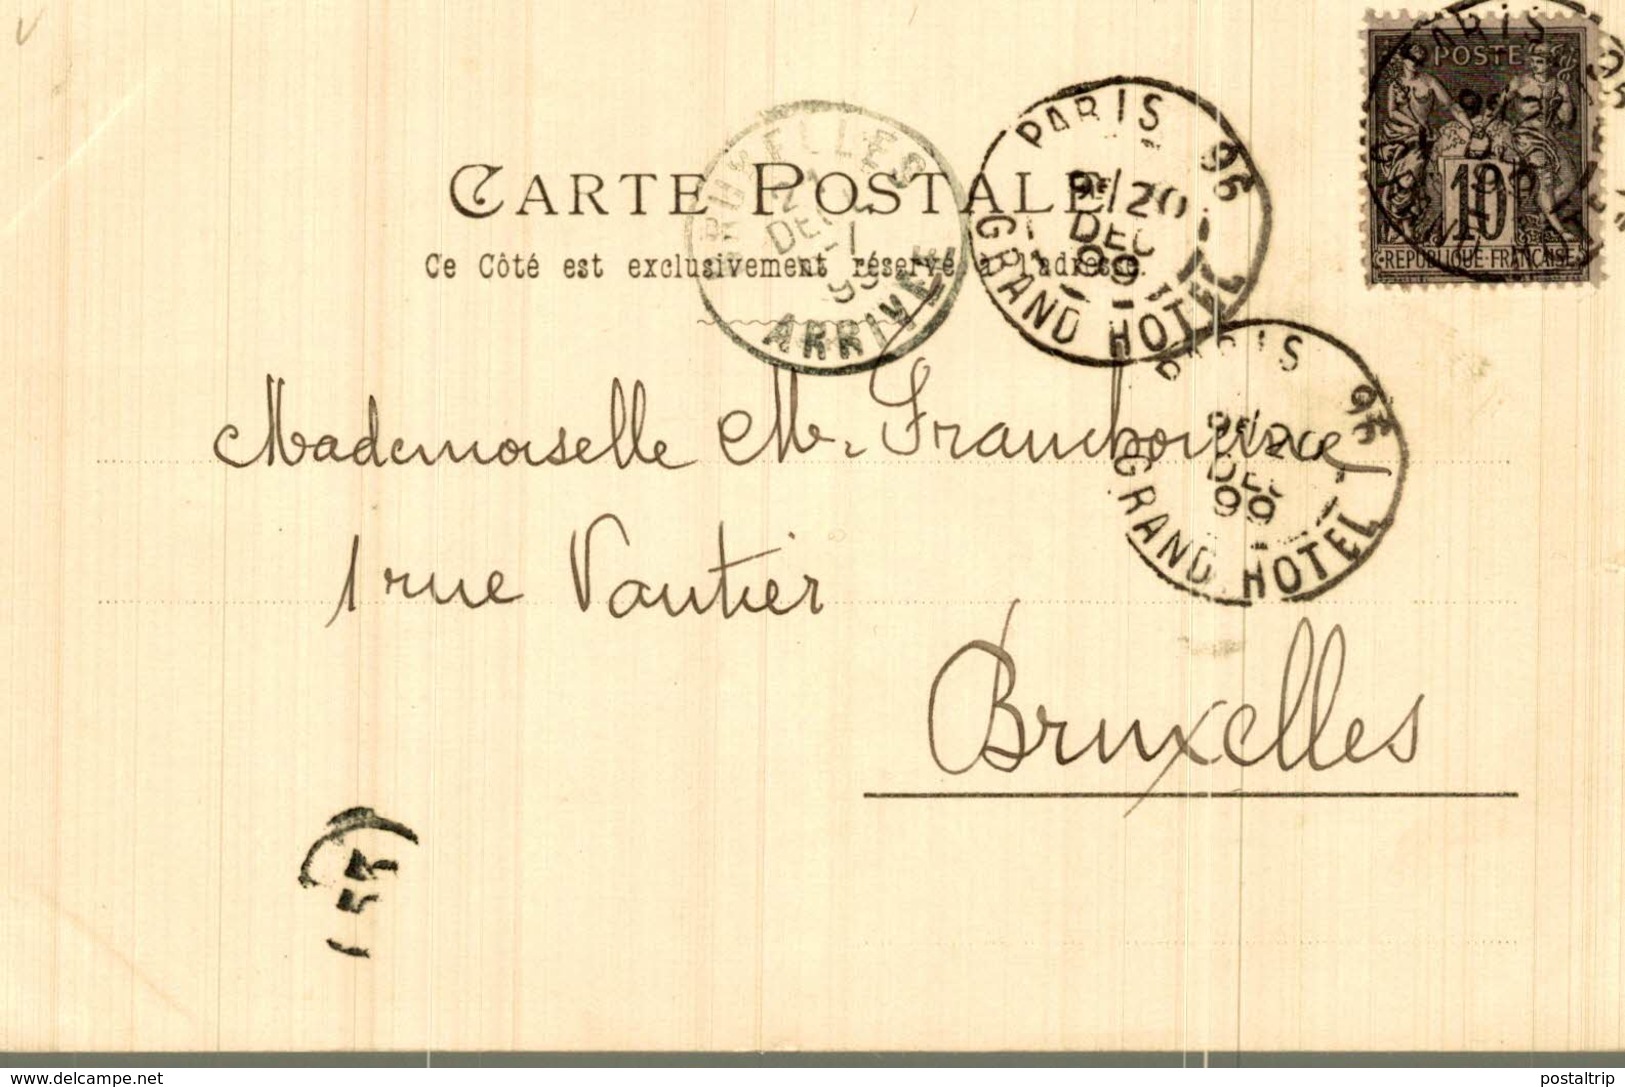 POSTE
10
REPUBLIQUE FRANÇAISE
PARIS 96
9E/20
DEC
99
GRAND HOTEL
BRUXELLES
21
DEC
99
ARRIVÉE
CARTE POSTALE
Ce Côté est exclusivement réservé à l'adresse.
PARIS 96
9E/20
DEC
99
GRAND HOTEL
Mademoiselle M. Franchomme
1 rue Vautier
Bruxelles
www.delcampe.net
postaltrip